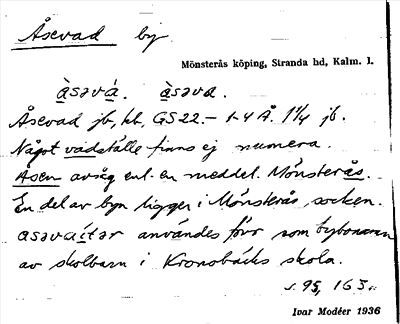 Åsevad by
Mönsterås köping, Stranda hd, Kalm. l.
àsəvá. àsəva.
Åsevad jb, kb, GS 22.– 1-4 Å. 1 1/4 jb.
Något vadställe finns ej numera.
Åsen avsåg enl. en meddel. Mönsterås.
En del av byn ligger i Mönsterås socken.
asəvaitar användes förr som bybonamn
av skolbarn i Kronobäcks skola.
s. 95, 163
Ivar Modéer 1936